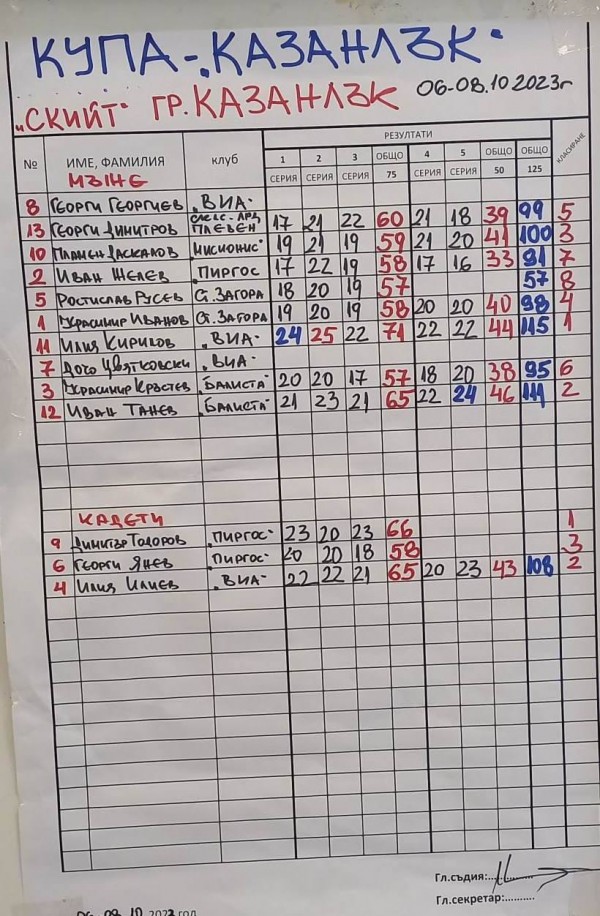 КУПА-„КАЗАНЛЪК"
„СКИЙТ" ГР. КАЗАНЛЪК 06-08.10 2023г
№ ИМЕ, ФАМИЛИЯ клуб РЕЗУЛТАТИ КЛАСИРАНЕ
1 2 3 ОБЩО 4 5 ОБЩО ОБЩО
СЕРИЯ СЕРИЯ СЕРИЯ 75 СЕРИЯ СЕРИЯ 50 125
МЪЖЕ
8 ГЕОРГИ ГЕОРГИЕВ „ВИА"
13 ГЕОРГИ ДИМИТРОВ ПЛЕВЕН 17 21 22 60 21 18 39 99 5
10 ПЛАМЕН ДАСКАЛОВ „МИСИОНИС" 19 21 19 59 21 20 41 100 3
2 ИВАН ЖЕЛЕВ „ПИРГОС 17 22 19 58 17 16 33 91 7
5 РОСТИСЛАВ РУСЕВ СТ. ЗАГОРА 18 20 19 57 57 8
1 КРАСИМИР ИВАНОВ СТ. ЗАГОРА 19 20 19 58 20 20 40 98 4
11 ИЛИЯ КИРИЛОВ „ВИА" 24 25 22 71 22 22 44 115 1
7 ДОГО ЦВЯТКОВСКИ „ВИА"
3 КРАСИМИР КРЪСТЕВ „БАЛИСТА" 20 20 17 57 18 20 38 95 6
12 ИВАН ТАНЕВ „БАЛИСТА" 21 23 21 65 22 24 46 111 2
КАДЕТИ
9 ДИМИТЪР ТОДОРОВ „ПИРГОС" 23 20 23 66 1
6 ГЕОРГИ ЯНЕВ „ПИРГОС" 20 20 18 58 3
4 ИЛИЯ ИЛИЕВ „ВИА" 22 22 21 65 20 23 43 108 2
Гл.съдия:
Гл.секретар:..........